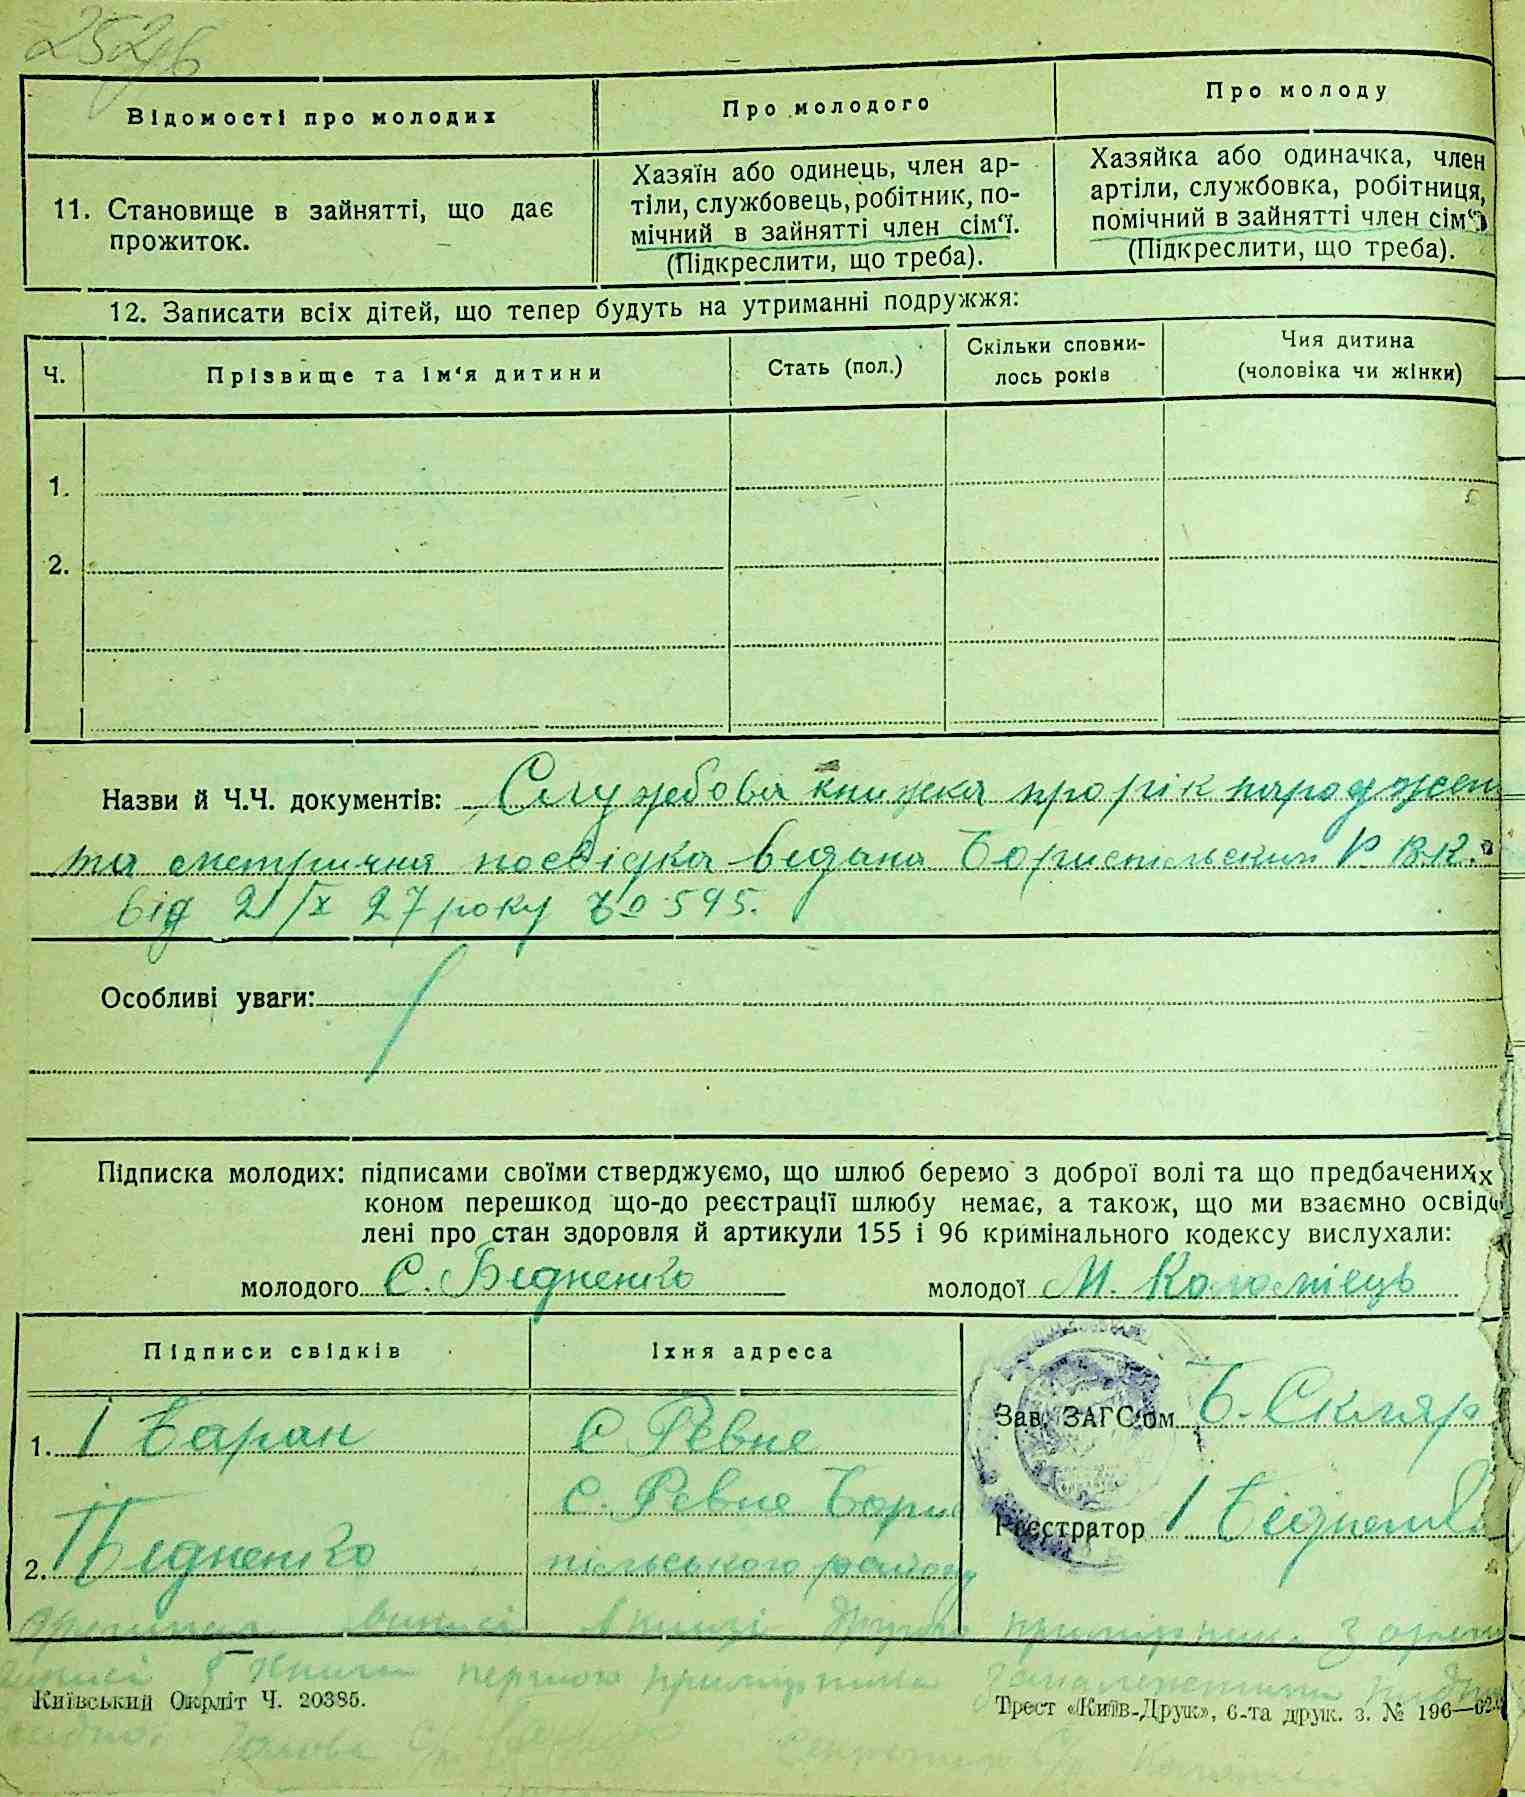 Відомості про молодих
Про молодого
Про молоду
11. Становище в зайнятті, що дає
прожиток.
Хазяїн або одинець, член ар-
тіли, службовець, робітник, по-
мічний в зайнятті член сім'ї.
(Підкреслити, що треба).
Хазяйка або одиначка, член
артіли, службовка, робітниця,
помічний в зайнятті член сім'ї
(Підкреслити, що треба).
12. Записати всіх дітей, що тепер будуть на утриманні подружжя:
Ч.
Прізвище та ім'я дитини
Стать (пол.)
Скільки сповни-
лось років
Чия дитина
(чоловіка чи жінки)
1.
2.
Назви й Ч.Ч. документів: Службова книжка про рік народжен
та метрична посвідка видана Бориспільским Р.В.К.
від 21/X 27 року Чо 595.
Особливі уваги:
Підписка молодих: підписами своїми стверджуємо, що шлюб беремо з доброї волі та що предбачених
коном перешкод що-до реєстрації шлюбу немає, а також, що ми взаємно освідо
лені про стан здоровля й артикули 155 і 96 кримінального кодексу вислухали:
молодого С. Бедненко молодої М. Коломієць
Підписи свідків
Їхня адреса
1. І Баран
с Ревне
2. Бедненко
с. Ревне Борис
пільського району
Зав. ЗАГС'ом Б. Скляр
Реєстратор
Київський Окрліт Ч. 20385.
Трест «Київ-Друк», 6-та друк. з. № 196—